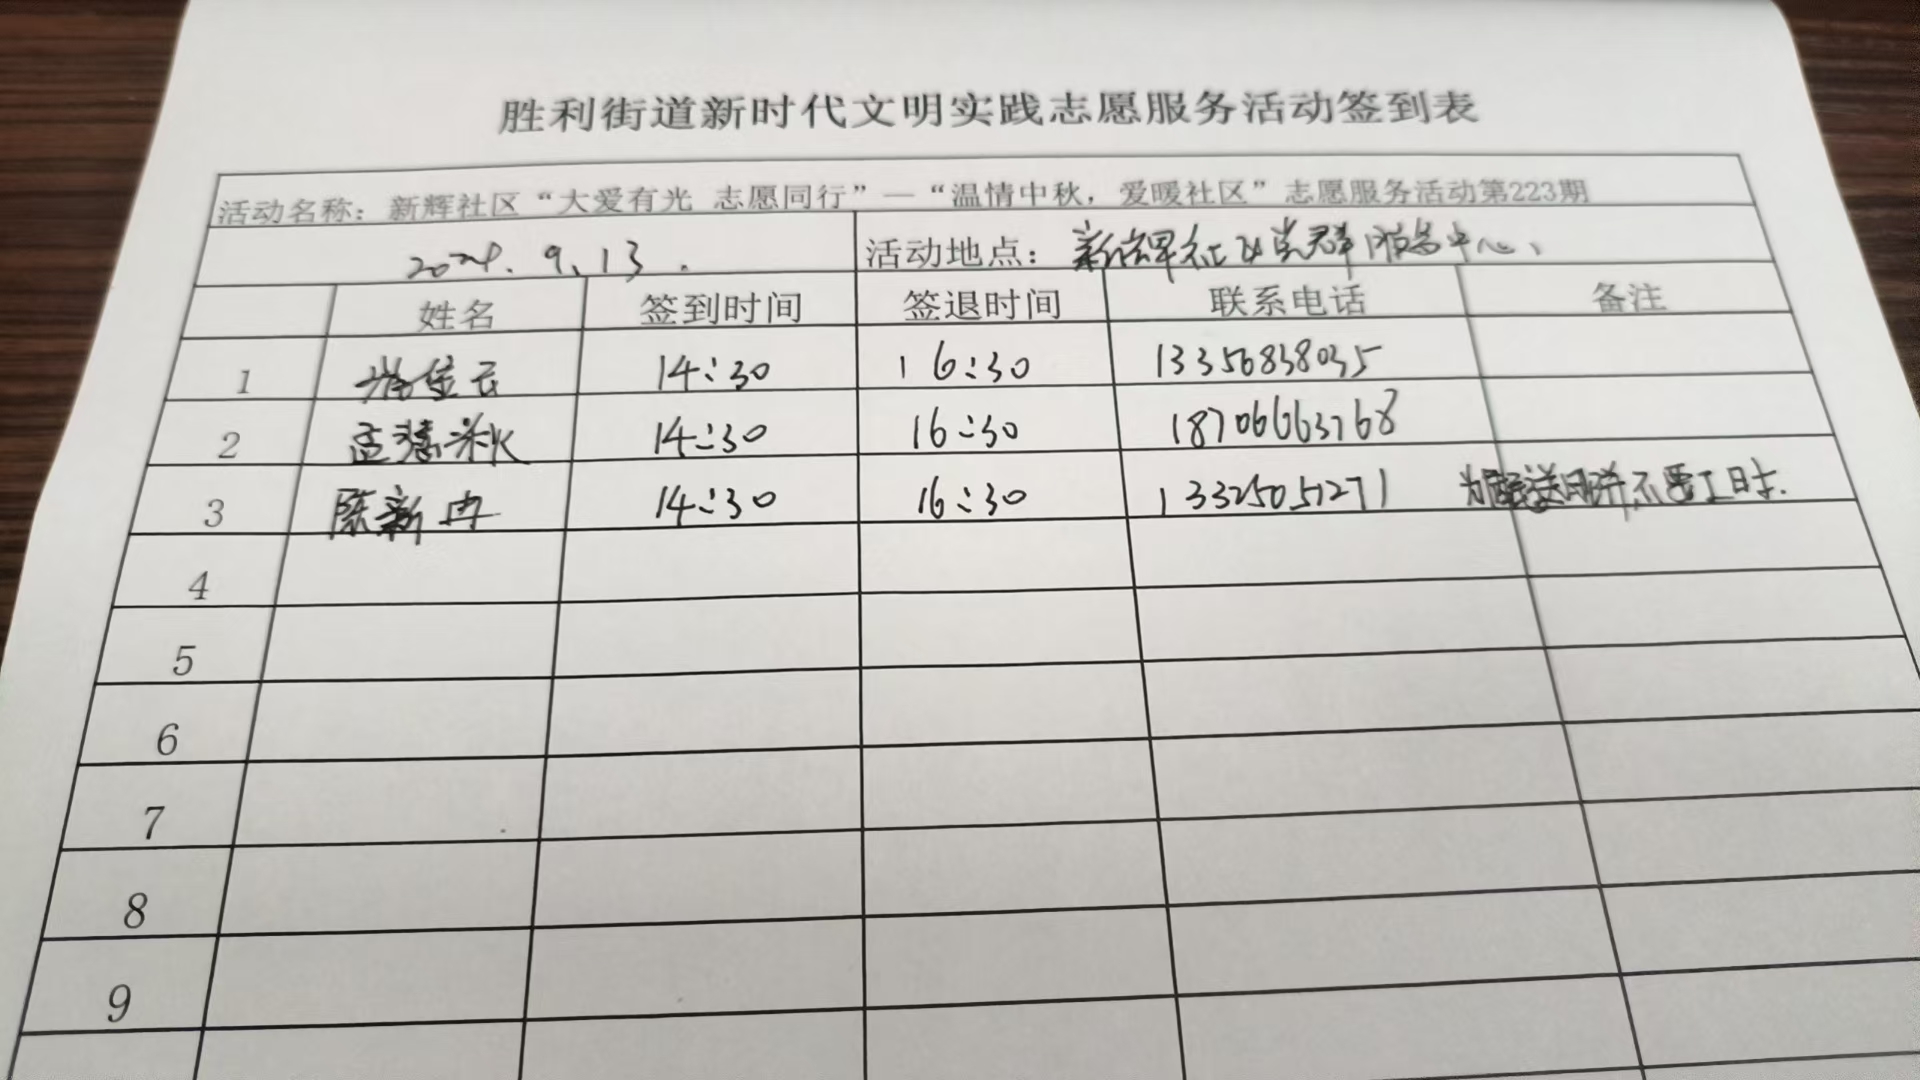 胜利街道新时代文明实践志愿服务活动签到表
活动名称：新辉社区“大爱有光 志愿同行”—“温情中秋，爱暖社区”志愿服务活动第223期
2024.9.13. 活动地点：新辉社区党群服务中心
姓名 签到时间 签退时间 联系电话 备注
1 14:30 16:30 13356838035
2 孟慧秋 14:30 16:30 18706663768
3 陈新冉 14:30 16:30 13325051271 送月饼不要工时.
4
5
6
7
8
9